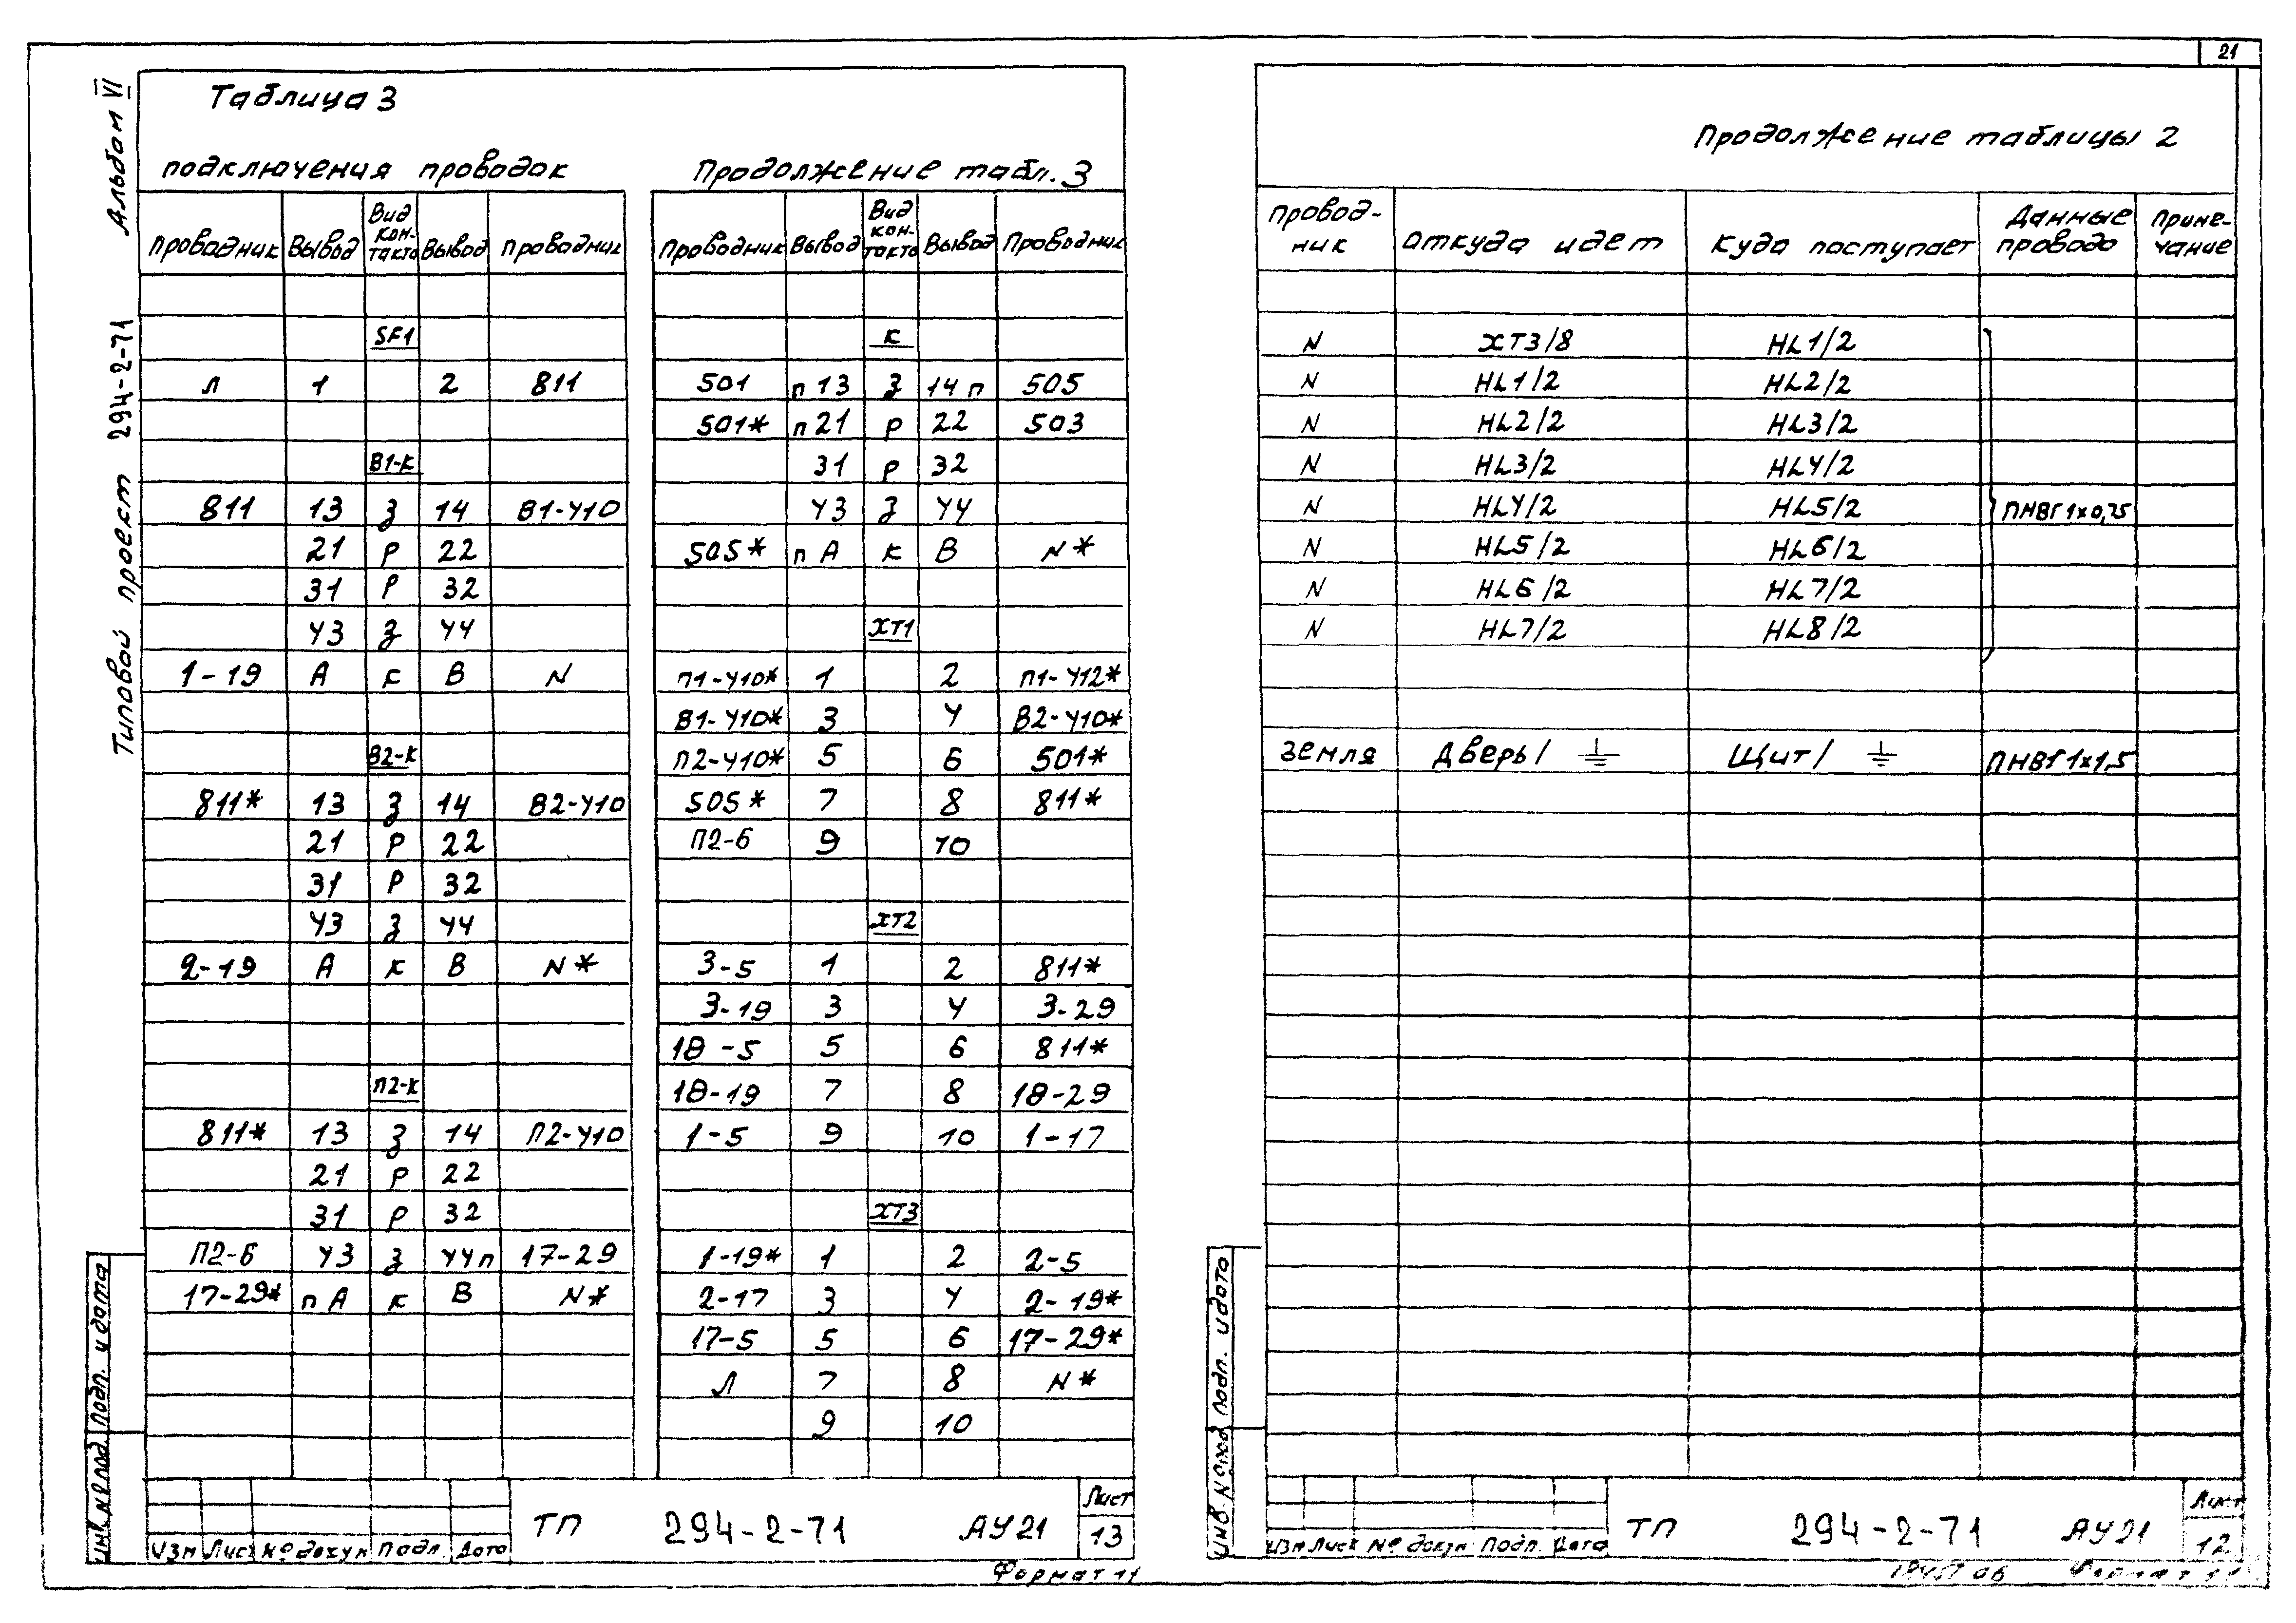 21
Альбом VI
Типовой проект 294-2-71
Таблица 3
подключения проводок
Проводник Вывод Вид контакта Вывод Проводник
SF1
Л 1 2 811
В1-К
811 13 З 14 В1-410
21 Р 22
31 Р 32
43 З 44
1-19 А К В N
В2-К
811* 13 З 14 В2-410
21 Р 22
31 Р 32
43 З 44
2-19 А К В N*
П2-К
811* 13 З 14 П2-410
21 Р 22
31 Р 32
П2-6 43 З 44 п 17-29
17-29* п А К В N*
Продолжение табл. 3
Проводник Вывод Вид контакта Вывод Проводник
К
501 п 13 З 14 п 505
501* п 21 Р 22 503
31 Р 32
43 З 44
505* п А К В N*
ХТ1
П1-410* 1 2 П1-412*
В1-410* 3 4 В2-410*
П2-410* 5 6 501*
505* 7 8 811*
П2-6 9 10
ХТ2
3-5 1 2 811*
3-19 3 4 3-29
18-5 5 6 811*
18-19 7 8 18-29
1-5 9 10 1-17
ХТ3
1-19* 1 2 2-5
2-17 3 4 2-19*
17-5 5 6 17-29*
Л 7 8 N*
9 10
Инв. № подл. Подп. и дата
Изм Лист № докум Подп. Дата
ТП 294-2-71 АУ21
Лист
13
Формат 11
Продолжение таблицы 2
Провод-
ник
Откуда идет
Куда поступает
Данные
провода
Приме-
чание
N ХТ3/8 HL1/2
N HL1/2 HL2/2
N HL2/2 HL3/2
N HL3/2 HL4/2
N HL4/2 HL5/2 ПНВГ 1х0,75
N HL5/2 HL6/2
N HL6/2 HL7/2
N HL7/2 HL8/2
Земля Дверь/ Щит/ ПНВГ 1х1,5
Инв. № подл. Подп. и дата
Изм Лист № докум Подп. Дата
ТП 294-2-71 АУ21
Лист
12
Формат 11